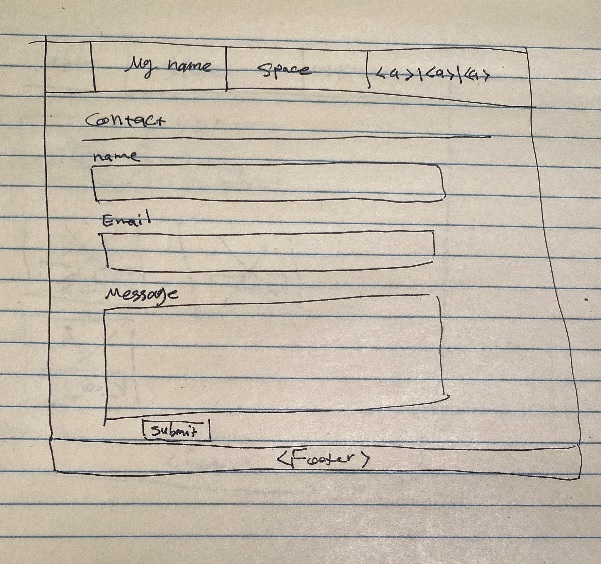 My name space <a>|<a>|<a>
Contact
name
Email
Message
Submit
<Footer>